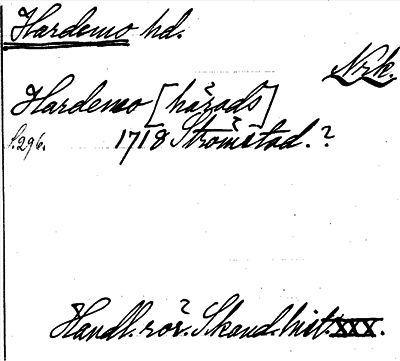 Hardemo hd.
Nrk.
Hardemo [härads]
S.296. 1718 Strömstad.?
Handl. rör. Skand. hist. XXX.